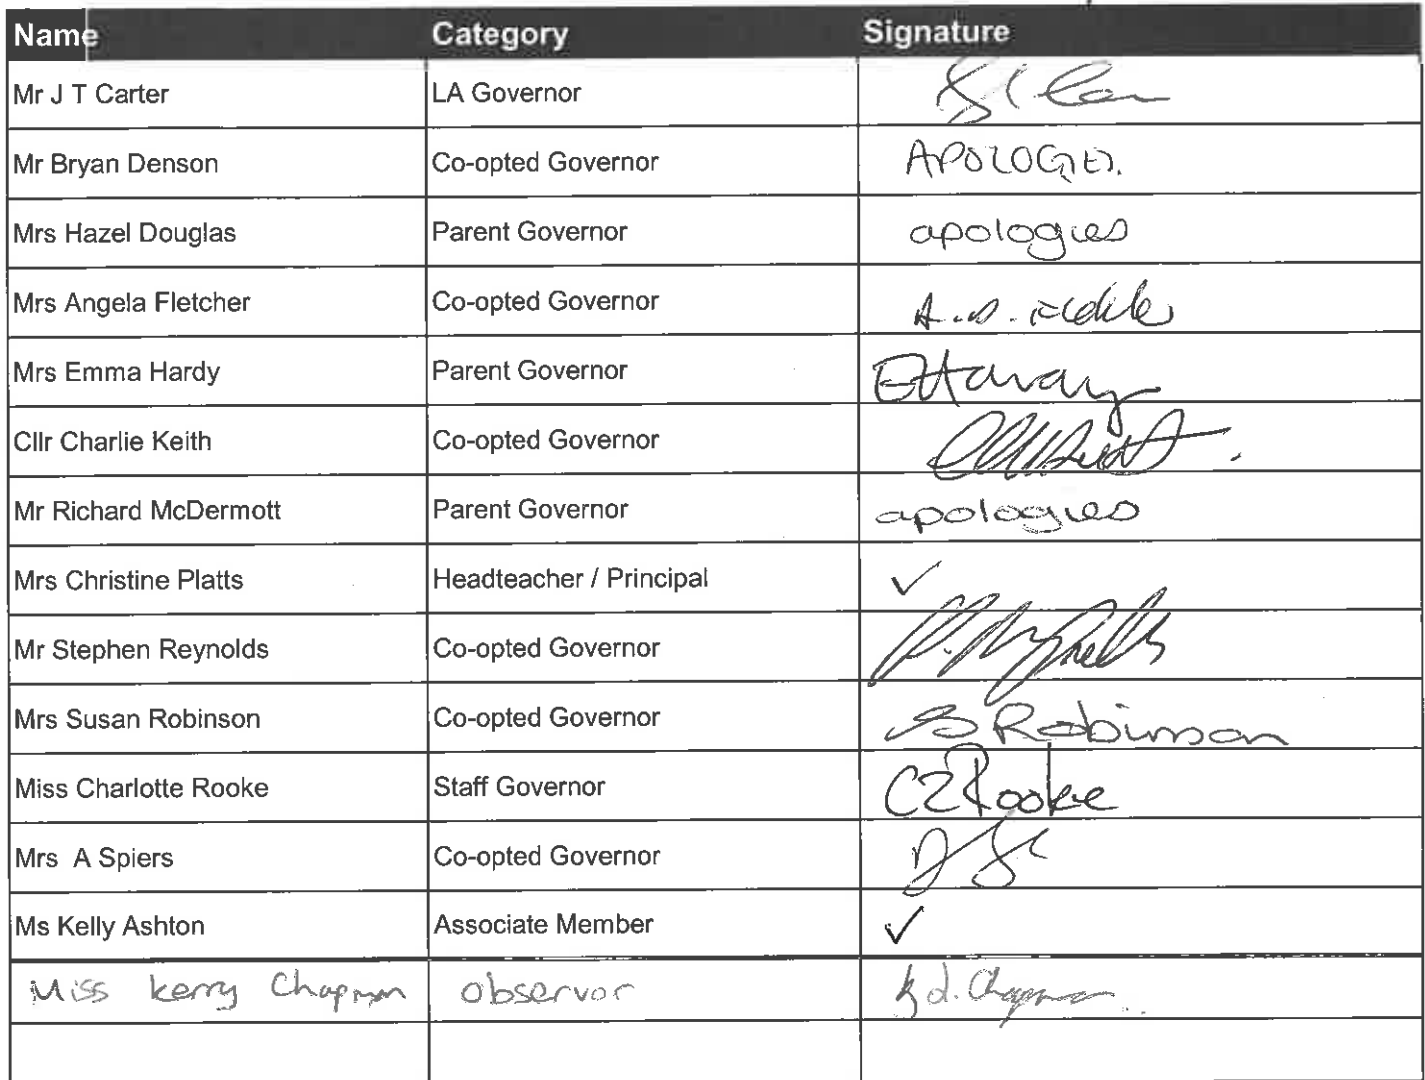 Name Category Signature
Mr J T Carter LA Governor
Mr Bryan Denson Co-opted Governor APOLOGIES.
Mrs Hazel Douglas Parent Governor apologies
Mrs Angela Fletcher Co-opted Governor
Mrs Emma Hardy Parent Governor EHardy
Cllr Charlie Keith Co-opted Governor
Mr Richard McDermott Parent Governor apologies
Mrs Christine Platts Headteacher / Principal ✓
Mr Stephen Reynolds Co-opted Governor
Mrs Susan Robinson Co-opted Governor S Robinson
Miss Charlotte Rooke Staff Governor CZRooke
Mrs A Spiers Co-opted Governor
Ms Kelly Ashton Associate Member ✓
Miss kerry Chapman observor K d. Chapman